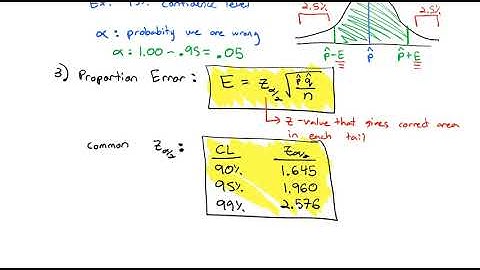 Ex: 95% confidence level
α: probabity we are wrong
α: 1.00 - .95 = .05
2.5%
2.5%
p̂-E
p̂
p̂+E
3) Proportion Error: E = z_α/2 √(p̂·q̂/n)
↳ z-value that gives correct area
in each tail
Common z_α/2:
CL z_α/2
90% 1.645
95% 1.960
99% 2.576